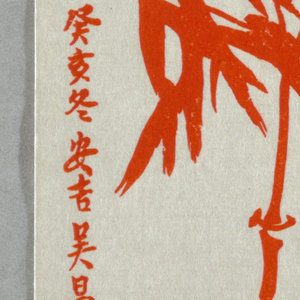 癸亥冬安吉吴昌